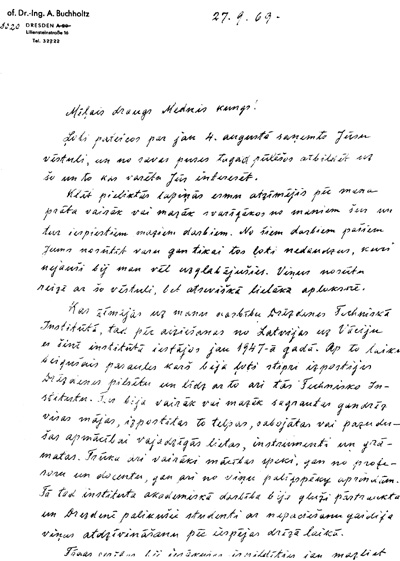 of. Dr.-Ing. A. Buchholtz
8020 DRESDEN A-20
Liliensteinstraße 16
Tel. 32222
27.9.69.
Mīļais draugs Mednis kungs!
Ļoti pateicos par jau 4. augustā saņemto Jūsu
vēstuli, un no savas puses tagad pūlēšos atbildēt uz
šo un to kas varētu Jūs interesēt.
Klāt pieliktās lapiņās esmu atzīmējis pēc mana
prāta vairāk vai mazāk svarīgākos no maniem šur un
tur iespiestiem maziem darbiem. No šiem darbiem pašiem
Jums nosūtīt varu gan tikai tos ļoti nedaudzus, kuri
nejauši bij man vēl uzglabājušies. Viņus nosūtu
reizē ar šo vēstuli, bet atsevišķā lielākā aploksnē.
Kas zīmējās uz manu darbību Drēzdenes Techniskā
Institūtā, tad pēc aiziešanas no Latvijas uz Vāciju
es šinī institūtā iestājos jau 1947-ā gadā. Ap to laiku
beigušais pasaules karš bija ļoti stipri izpostījis
Drēzdenes pilsētu un līdz ar to arī tās Technisko In-
stitutu. Tur bija vairāk vai mazāk sagrautas gandrīz
visas mājas, izpostītas to telpas, sabojātas vai pazudu-
šas apmācībai vajadzīgās lietas, instrumenti un grā-
matas. Trūka arī vairāki mācības spēki, gan no profe-
soru un docentu, gan arī no viņu palīgspēku aprindām.
Tā tad institūta akadēmiskā darbība bija gluži pārtraukta
un Drēzdenē palikušie studenti ar nepacietību gaidīja
viņas atdzīvināšanu pēc iespējas drīzā laikā.